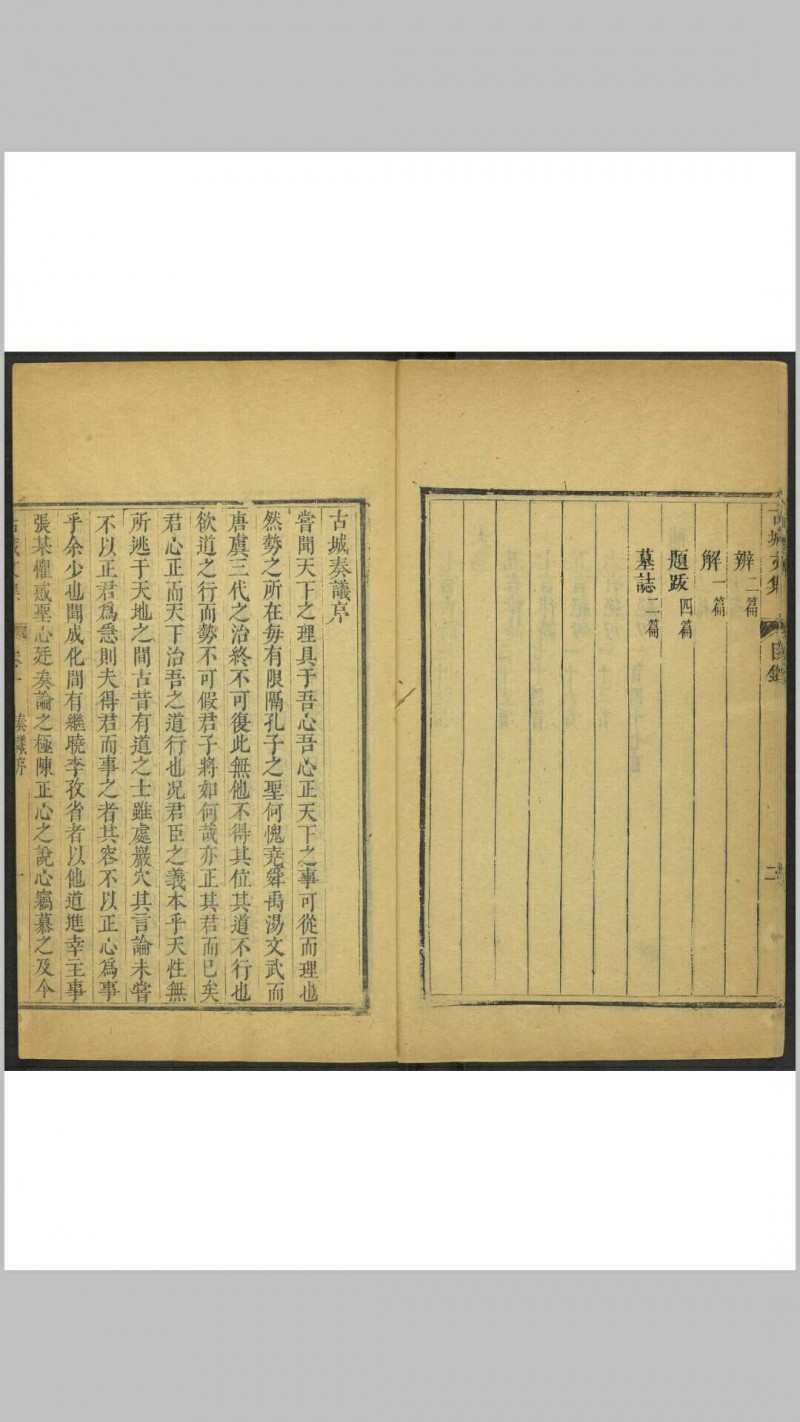 古城文集
目錄
二
辨二篇
解一篇
題跋四篇
墓誌二篇
古城奏議序
嘗聞天下之理具于吾心吾心正天下之事可從而理也
然勢之所在每有限隔孔子之聖何愧堯舜禹湯文武而
唐虞三代之治終不可復此無他不得其位其道不行也
欲道之行而勢不可假君子將如何哉亦正其君而已矣
君心正而天下治吾之道行也况君臣之義本乎天性無
所逃于天地之間古昔有道之士雖處巖穴其言論未嘗
不以正君爲急則夫得君而事之者其容不以正心爲事
乎余少也聞成化間有繼曉李孜省者以他道進幸主事
張某懼惑聖心廷奏論之極陳正心之說心竊慕之及今
古城文集
卷一
奏議序
一